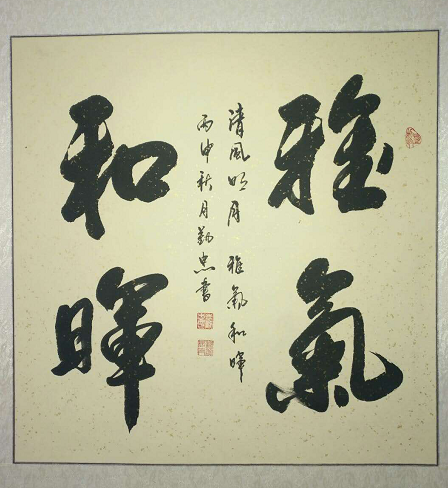 雅氣
和暉
清风明月 雅氣和暉
丙申秋月勤忠書